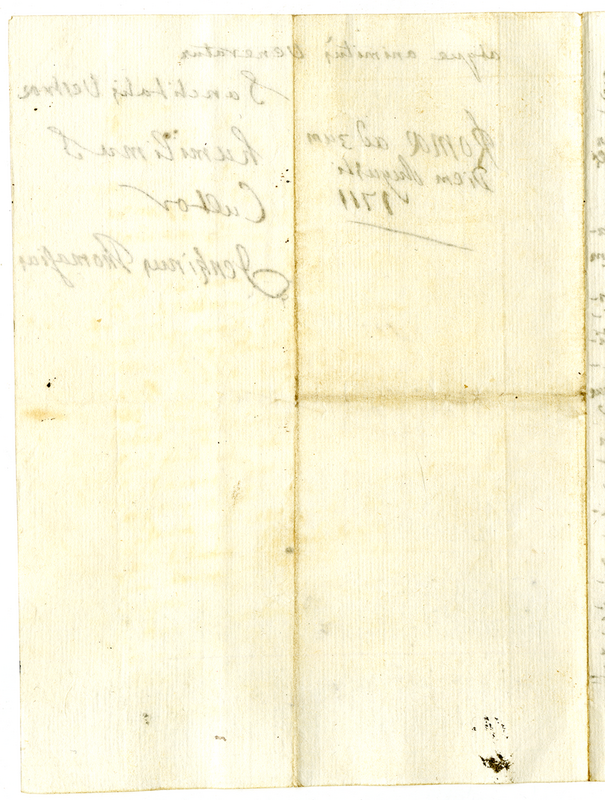 atque animitus veneratur
Sanctitatis Vestræ
humilimus
Cultor
Jenkinus Thomasius
Romæ ad 3um
Diem Augusti
1711